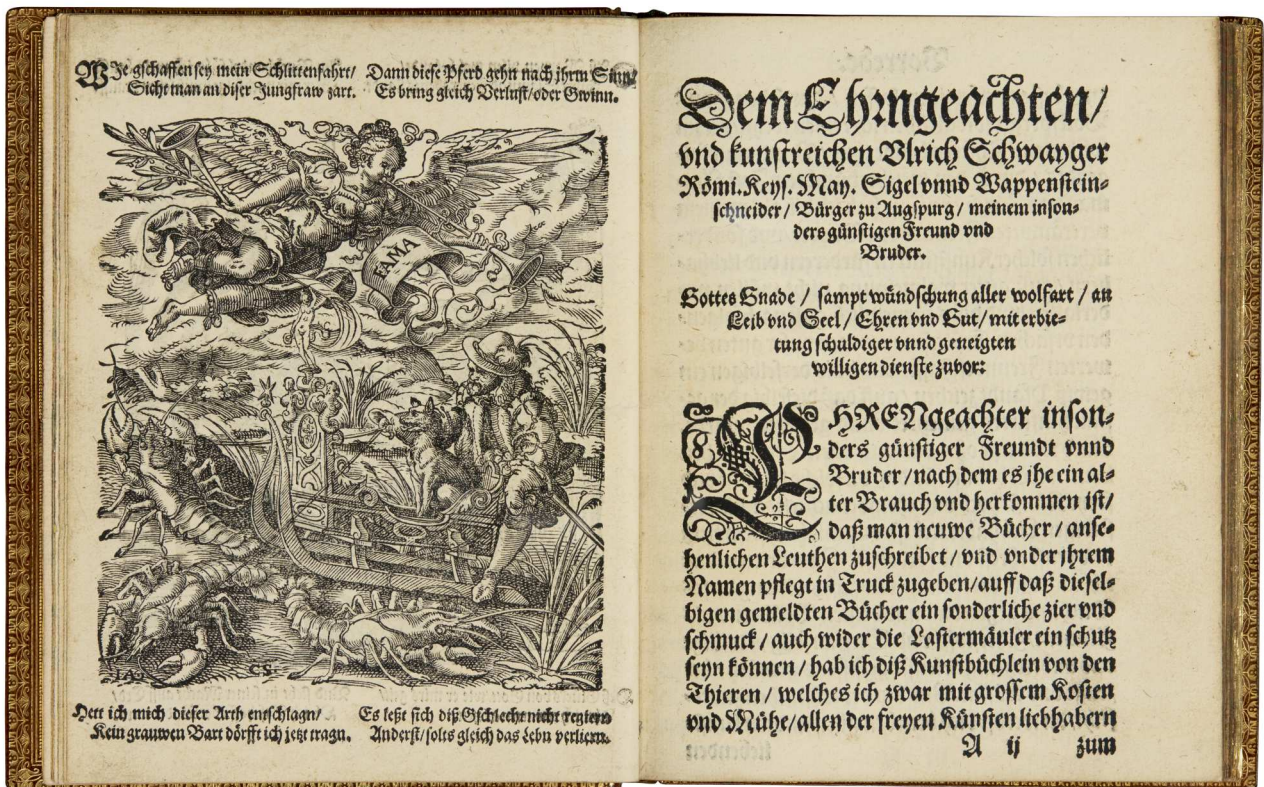 WJe gschaffen sey mein Schlittenfahrt/
Sicht man an diser Jungfraw zart.
Dann diese Pferd gehn nach jhrm Sinn/
Es bring gleich Verlust/oder Gwinn.
FAMA
IA
CS
Hett ich mich dieser Arth entschlagn/
Kein grauwen Bart dörfft ich jetzt tragn.
Es leßt sich diß Gschlecht nicht regiern
Anderst/solts gleich das Lebn verliern.
Dem Ehrngeachten/
vnd kunstreichen Vlrich Schwayger
Römi. Keys. May. Sigel vnnd Wappenstein-
schneider / Bürger zu Augspurg / meinem inson-
ders günstigen Freund vnd
Bruder.
Gottes Gnade / sampt wündschung aller wolfart / an
Leib vnd Seel / Ehren vnd Gut / mit erbie-
tung schuldiger vnnd geneigten
willigen dienste zuvor:
EHRENgeachter inson-
ders günstiger Freundt vnnd
Bruder / nach dem es jhe ein al-
ter Brauch vnd herkommen ist/
daß man neuwe Bücher / anse-
henlichen Leuthen zuschreibet / vnd vnder jhrem
Namen pflegt in Truck zugeben / auff daß diesel-
bigen gemeldten Bücher ein sonderliche zier vnd
schmuck / auch wider die Lastermäuler ein schutz
seyn können / hab ich diß Kunstbüchlein von den
Thieren / welches ich zwar mit grossem Kosten
vnd Mühe/allen der freyen Künsten liebhabern
A ij zum